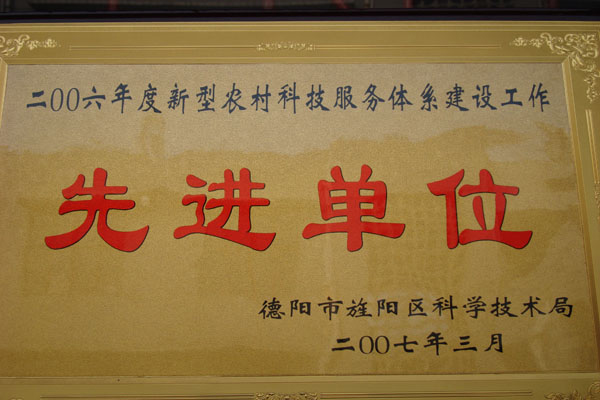 二00六年度新型农村科技服务体系建设工作
先进单位
德阳市旌阳区科学技术局
二00七年三月